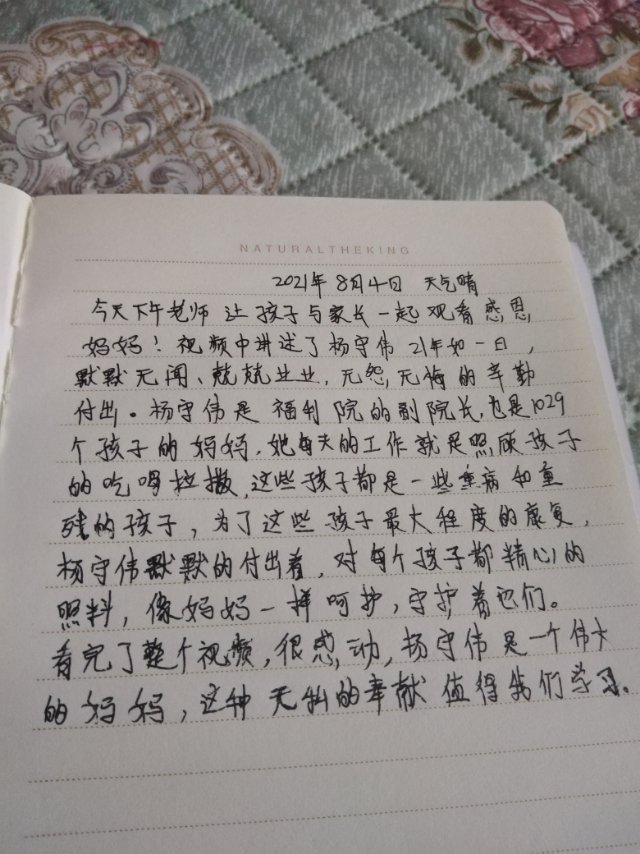 NATURALTHEKING
2021年8月4日 天气晴
今天下午老师让孩子与家长一起观看感恩
妈妈！视频中讲述了杨守伟21年如一日，
默默无闻、兢兢业业，无怨，无悔的辛勤
付出。杨守伟是福利院的副院长，也是1029
个孩子的妈妈，她每天的工作就是照顾孩子
的吃喝拉撒，这些孩子都是一些重病和重
残的孩子，为了这些孩子最大程度的康复，
杨守伟默默的付出着，对每个孩子都精心的
照料，像妈妈一样呵护，守护着它们。
看完了整个视频，很感动，杨守伟是一个伟大
的妈妈，这种无私的奉献值得我们学习。